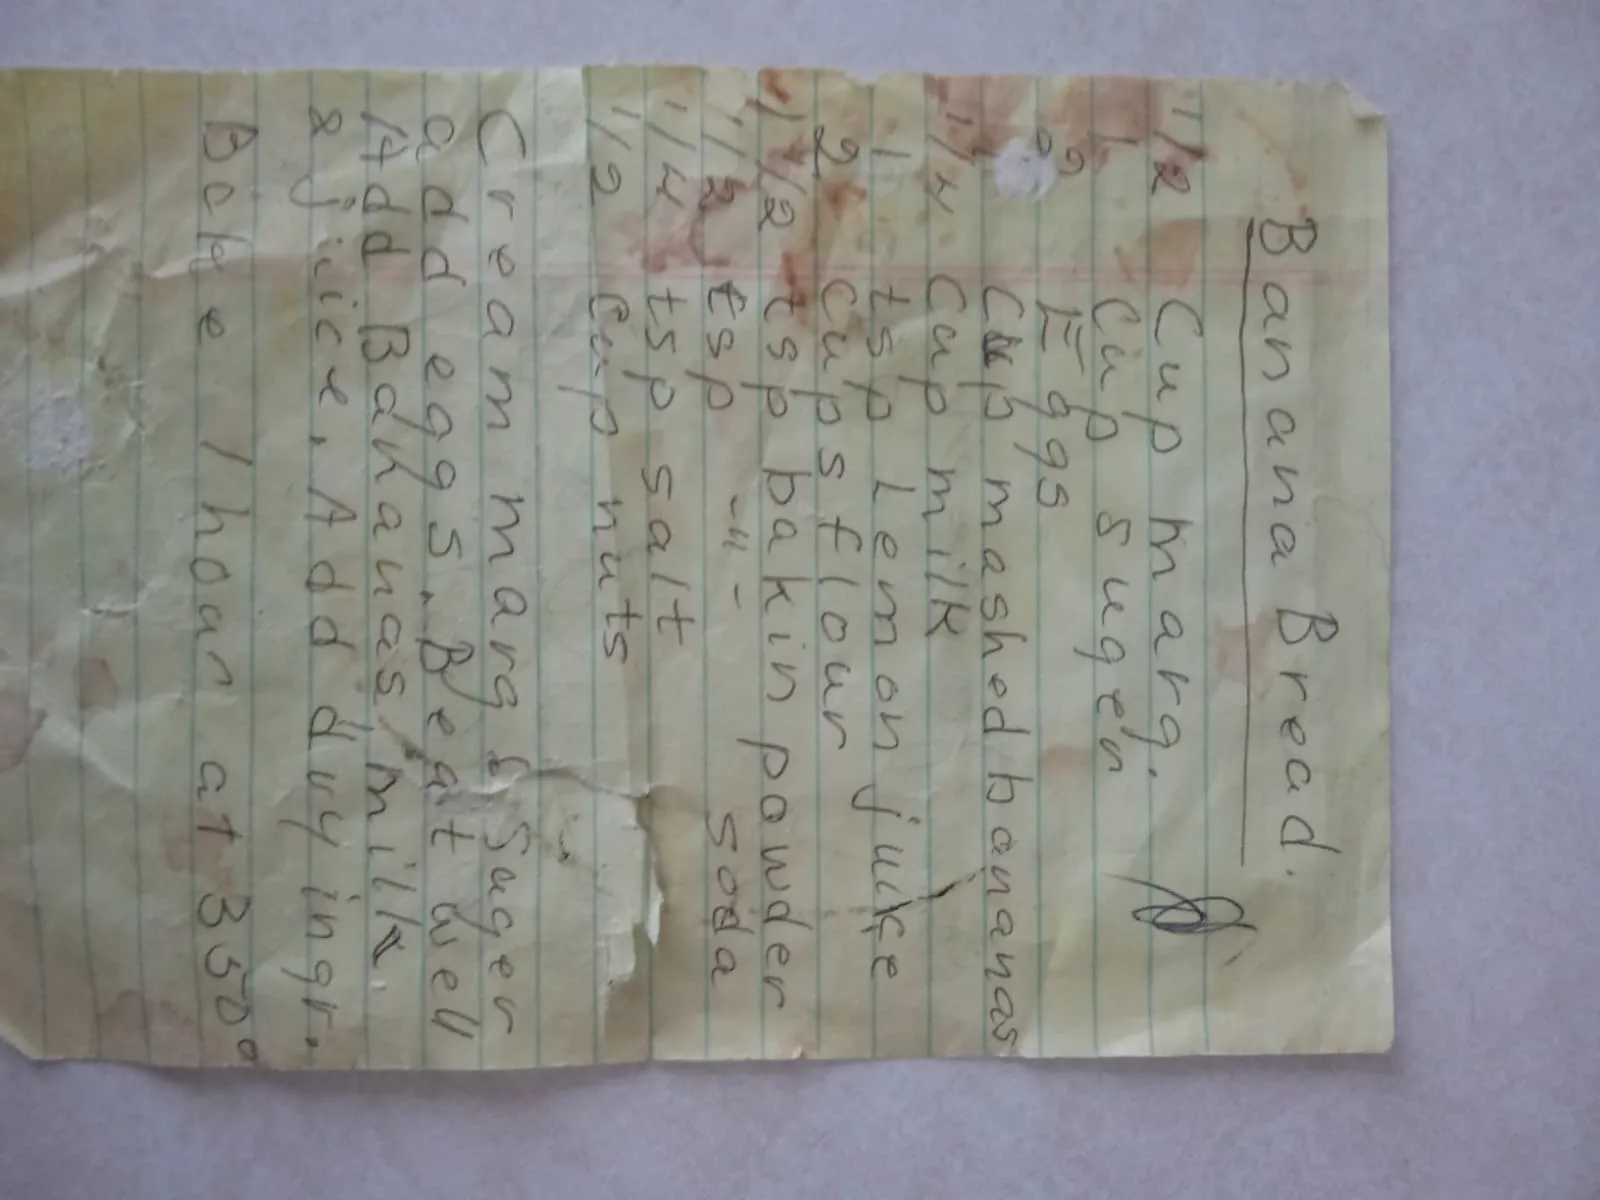 Banana Bread.
1/2 Cup marg.
1 Cup suger
2 Eggs
Cup mashed bananas
1/4 Cup milk
1 tsp Lemon juice
2 cups flour
1 1/2 tsp bakin powder
1/2 tsp -"- soda
1/4 tsp salt
1/2 Cup nuts
Cream marg & Suger
add eggs. Beat well
Add Bananas, milk
& jiice. Add dry ingr.
Bake 1 hour at 350°